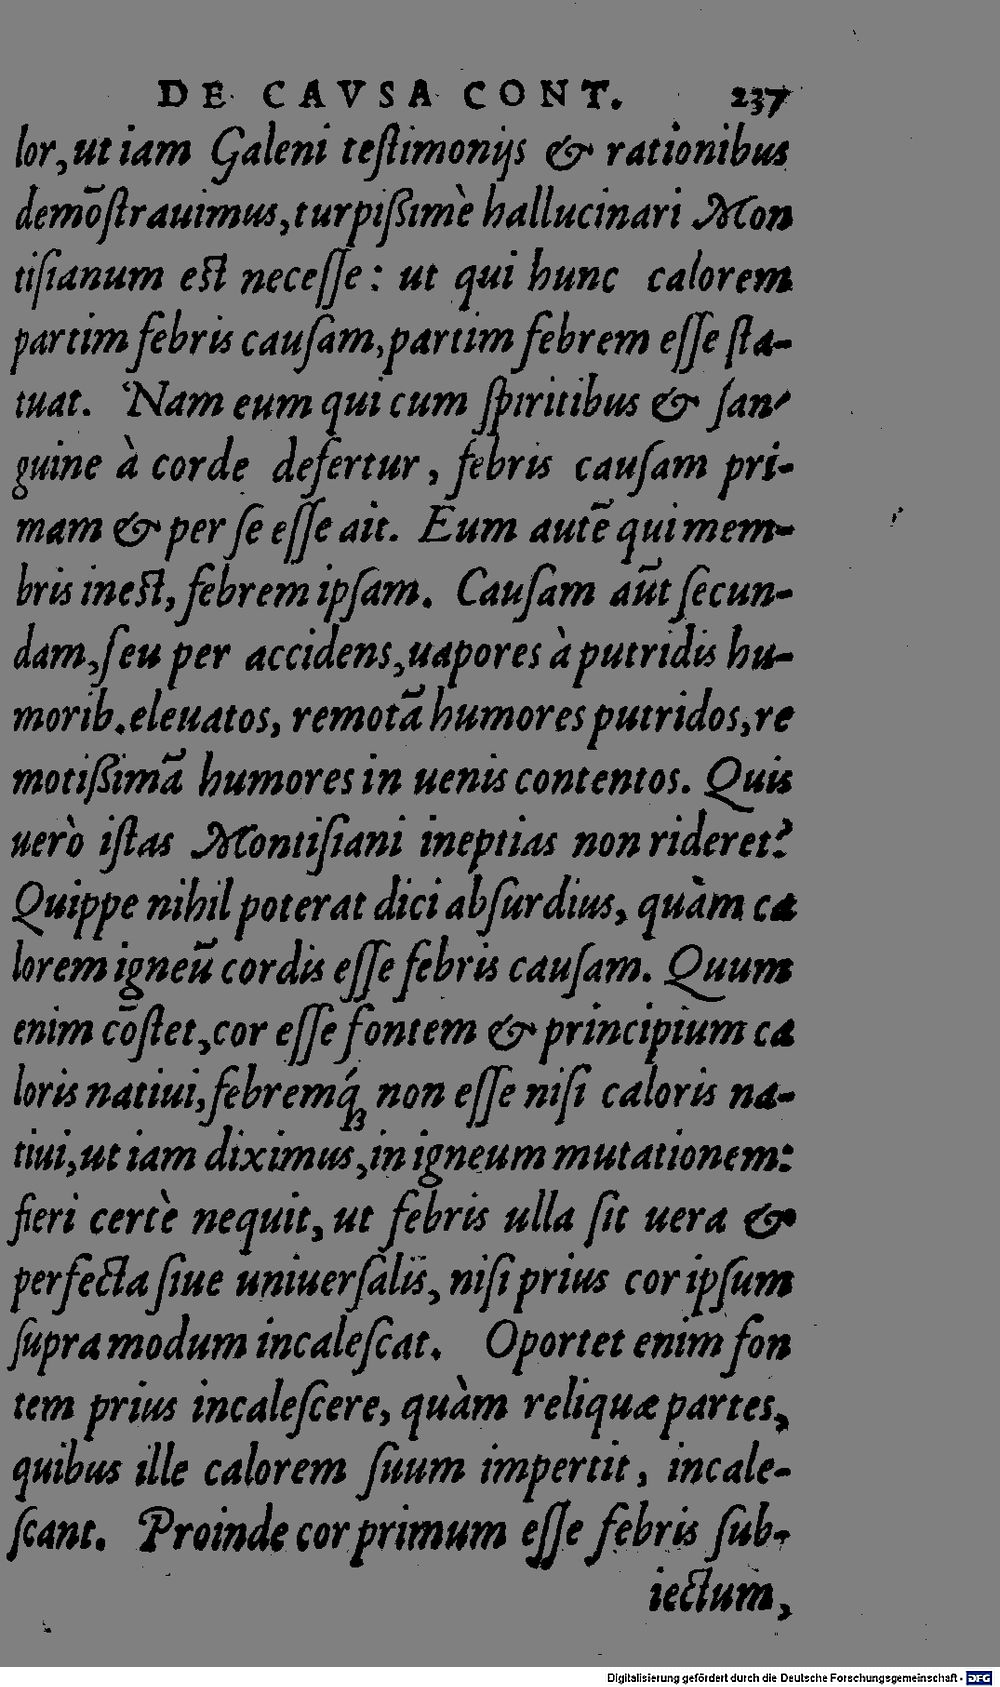 DE CAVSA CONT. 237
lor, ut iam Galeni teſtimonijs & rationibus
demõſtrauimus, turpiſsimè hallucinari Mon
tiſianum eſt neceſſe: ut qui hunc calorem
partim febris cauſam, partim febrem eſſe ſta-
tuat. Nam eum qui cum ſpiritibus & ſan-
guine à corde defertur, febris cauſam pri-
mam & per ſe eſſe ait. Eum autẽ qui mem-
bris ineſt, febrem ipſam. Cauſam aũt ſecun-
dam, ſeu per accidens, uapores à putridis hu-
morib. eleuatos, remotã humores putridos, re
motiſsimã humores in uenis contentos. Quis
uerò iſtas Montiſiani ineptias non rideret?
Quippe nihil poterat dici abſurdius, quàm ca
lorem igneũ cordis eſſe febris cauſam. Quum
enim cõſtet, cor eſſe fontem & principium ca
loris natiui, febremq́; non eſſe niſi caloris na-
tiui, ut iam diximus, in igneum mutationem:
fieri certè nequit, ut febris ulla ſit uera &
perfecta ſiue uniuerſalis, niſi prius cor ipſum
ſupra modum incaleſcat. Oportet enim fon
tem prius incaleſcere, quàm reliquæ partes,
quibus ille calorem ſuum impertit, incale-
ſcant. Proinde cor primum eſſe febris ſub-
iectum,
Digitalisierung gefördert durch die Deutsche Forschungsgemeinschaft - DFG